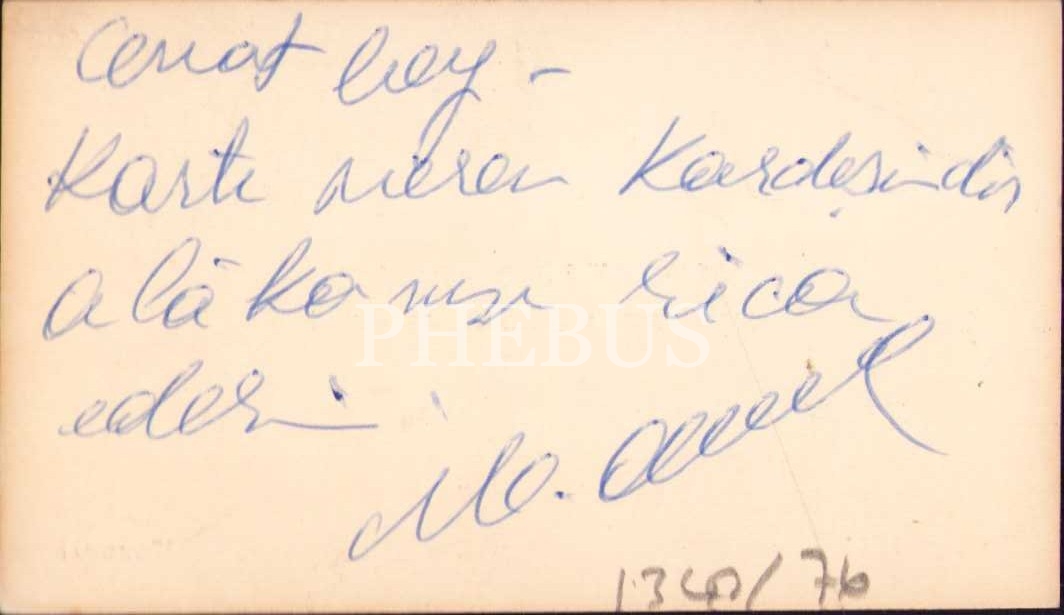 Cevat bey -
Kartı veren Kardeşimdir
alâkanızı rica
ederim
PHEBUS
M.
/76